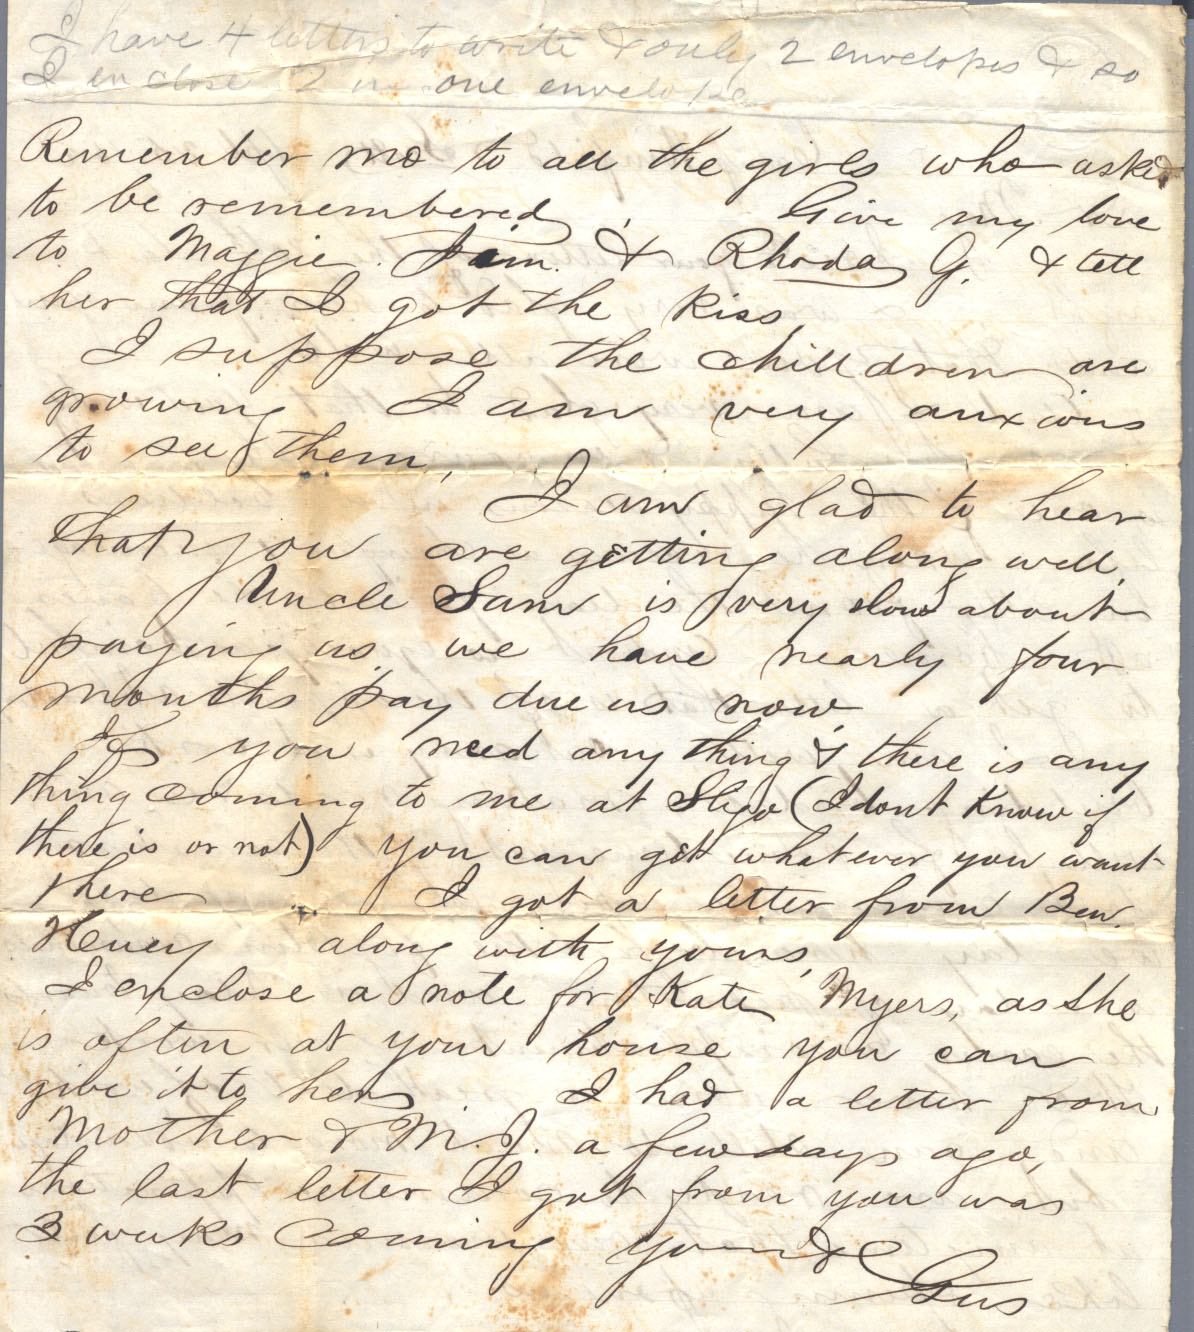 I have 4 letters to write & only 2 envelopes & so
I enclose 2 in one envelope
Remember me to all the girls who asked
to be remembered. Give my love
to Maggie Jim & Rhoda G. & tell
her that I got the kiss,
I suppose the chilldren are
growing I am very anxious
to see them, I am glad to hear
that you are getting along well,
Uncle Sam is very slow about
paying us we have nearly four
months pay due us now,
If you need any thing & there is any
thing coming to me at Sligo (I dont Know if
there is or not) you can get whatever you want
there I got a letter from Ben.
Huey along with yours,
I enclose a note for Kate Myers, as she
is often at your house you can
give it to her I had a letter from
Mother & M. J. a few days ago,
the last letter I got from you was
3 weeks coming yours &c
Gus